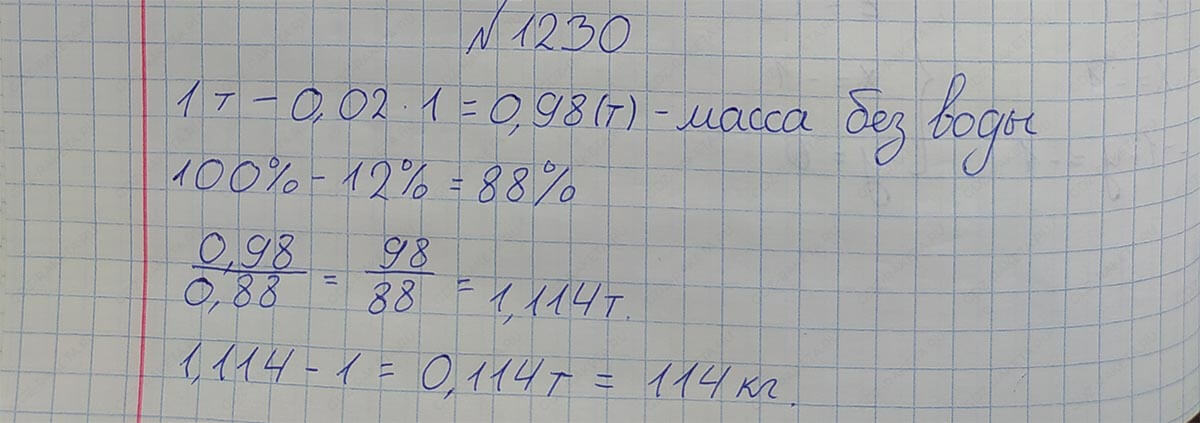 №1230
1 т - 0,02 · 1 = 0,98 (т) - масса без воды
100% - 12% = 88%
0,98/0,88 = 98/88 = 1,114 т.
1,114 - 1 = 0,114 т = 114 кг.